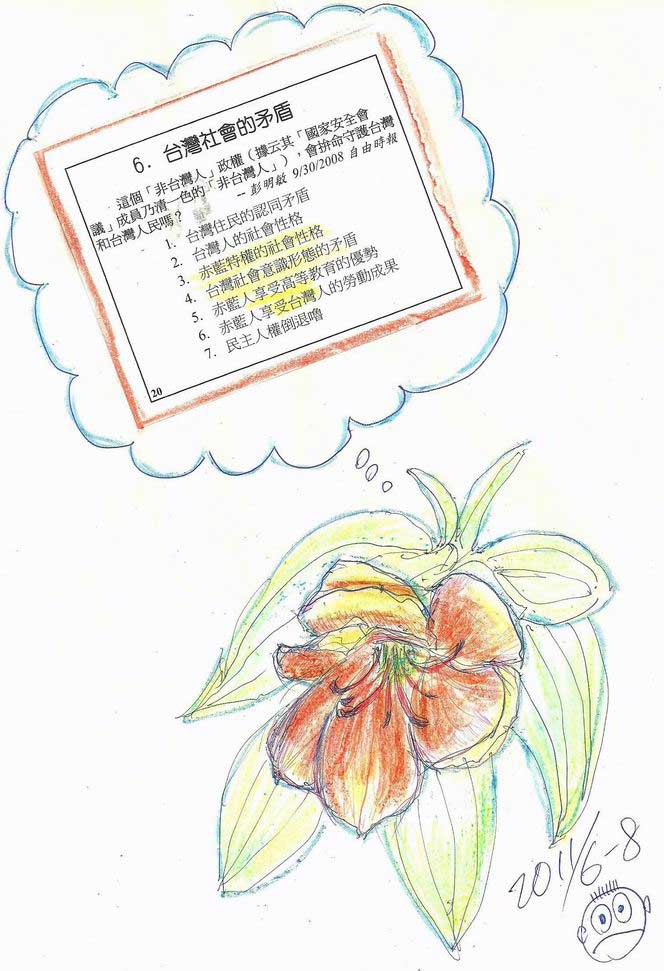 6. 台灣社會的矛盾
這個「非台灣人」政權（據云其「國家安全會
議」成員乃清一色的「非台灣人」），會拚命守護台灣
和台灣人民嗎？
－彭明敏 9/30/2008 自由時報
1. 台灣住民的認同矛盾
2. 台灣人的社會性格
3. 赤藍特權的社會性格
4. 台灣社會意識形態的矛盾
5. 赤藍人享受高等教育的優勢
6. 赤藍人享受台灣人的勞動成果
7. 民主人權倒退嚕
20
2011/6-8